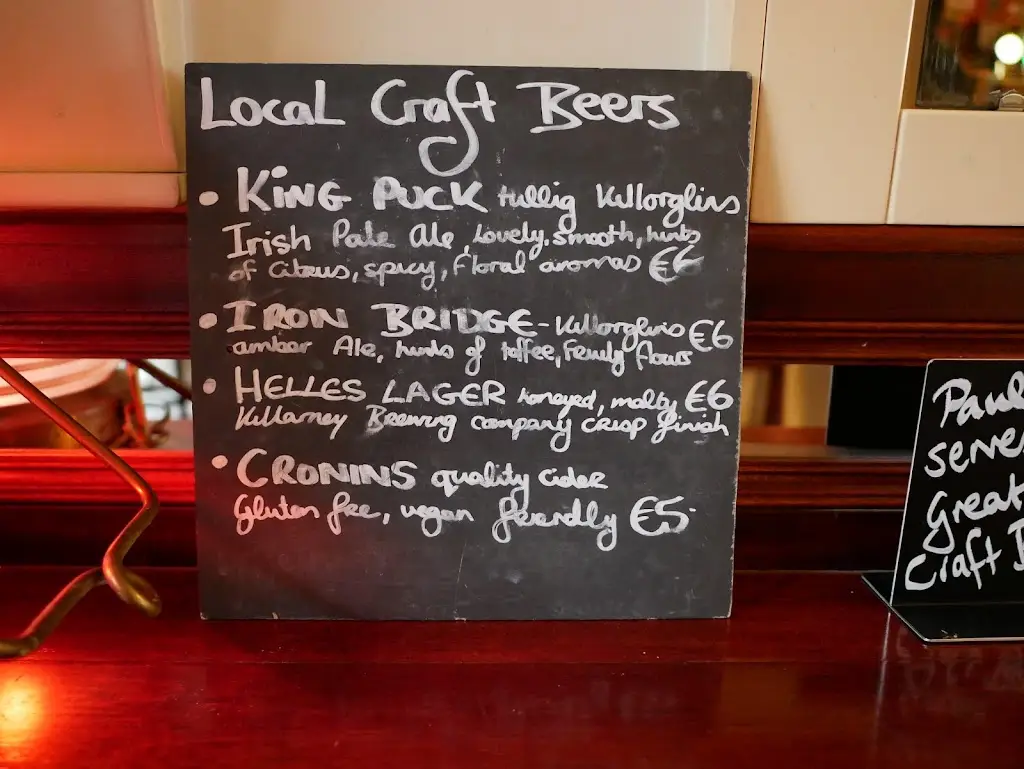 Local Craft Beers
• KING PUCK tullig Killorglins
Irish Pale Ale, Lovely, smooth, hints
of Citrus, spicy, Floral aromas €6
• IRON BRIDGE - Killorglins €6
amber Ale, hints of toffee,
• HELLES LAGER honeyed, malty €6
Killarney Brewing company crisp finish
• CRONINS quality cider
Gluten free, vegan friendly €5
Paul
serve
Great
Craft